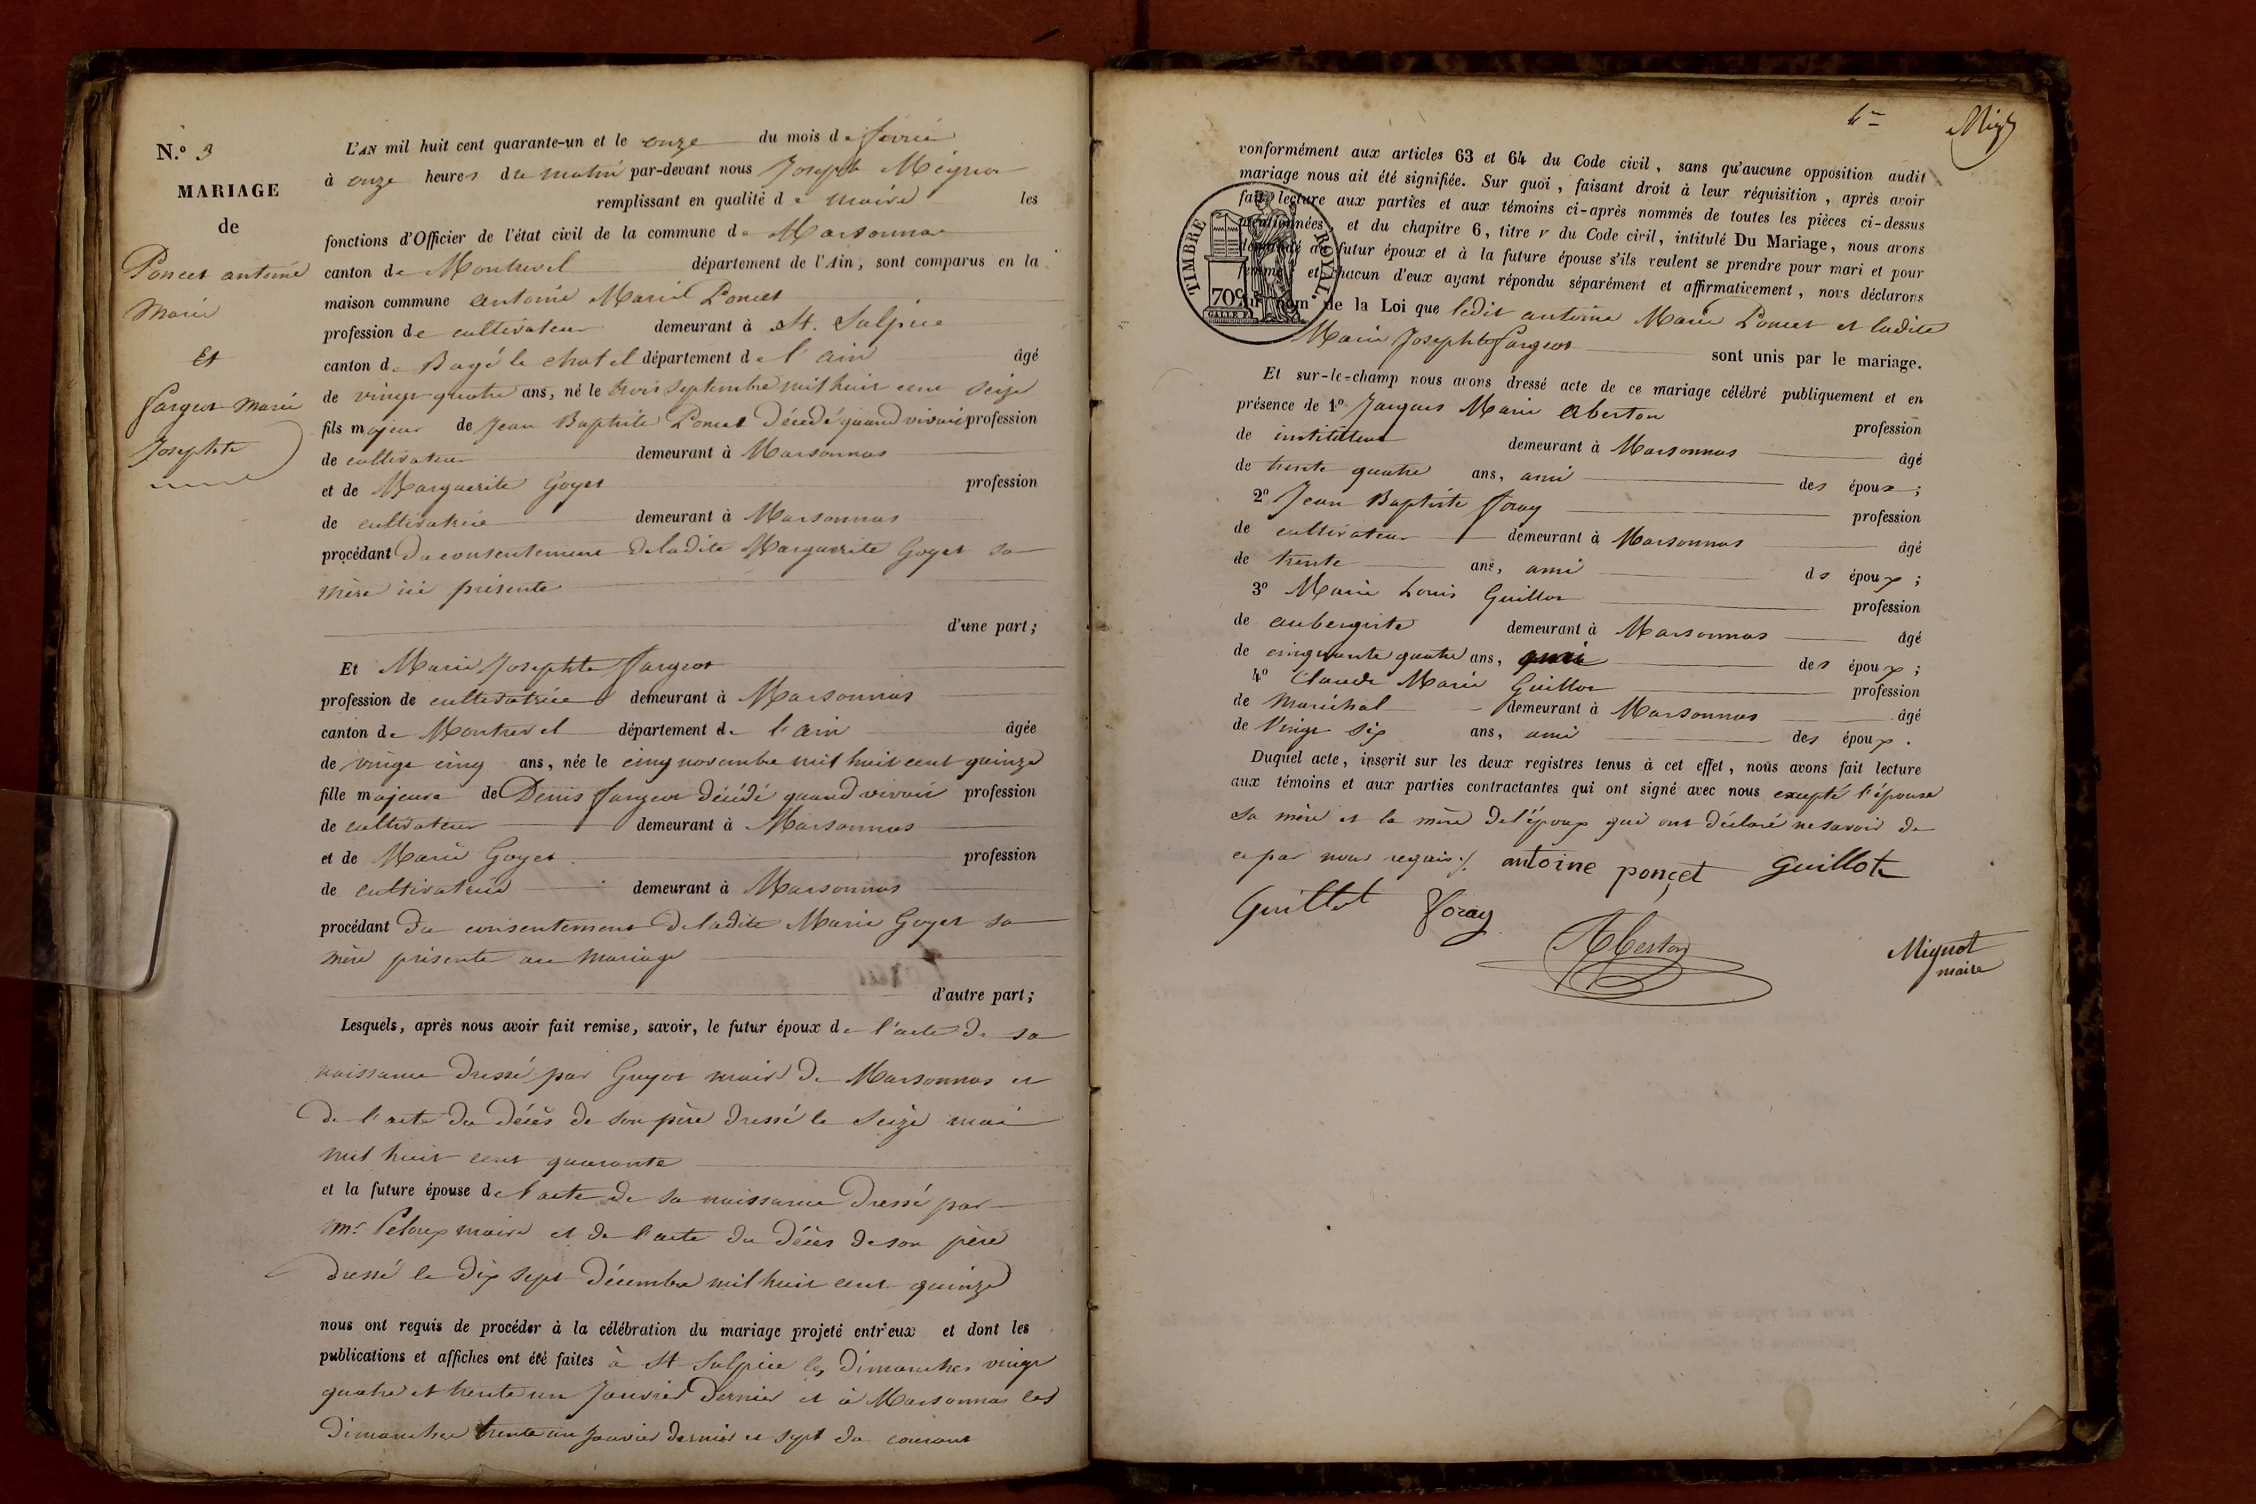 N.º 3
MARIAGE
de
Poncet antoine
Marie
Et
Fargeot Marie
Josephte
L'AN mil huit cent quarante-un et le onze du mois de février
à onze heures du matin par-devant nous Joseph Mignot
remplissant en qualité de maire les
fonctions d'Officier de l'état civil de la commune de Marsonnas
canton de Montrevel département de l'Ain, sont comparus en la
maison commune antoine Marie Poncet
profession de cultivateur demeurant à St. Sulpice
canton de Bagé le chatel département de l'ain âgé
de vingt quatre ans, né le trois septembre mil huit cent seize
fils majeur de Jean Baptiste Poncet Décédé quand vivait profession
de cultivateur demeurant à Marsonnas
et de Marguerite Goyet profession
de cultivatrice demeurant à Marsonnas
procédant du consentement de ladite Marguerite Goyet sa
mère ici présente
d'une part;
Et Marie Josephte Fargeot
profession de cultivatrice demeurant à Marsonnas
canton de Montrevel département de l'ain âgée
de vingt cinq ans, née le cinq novembre mil huit cent quinze
fille majeure de Denis Fargeot décédé quand vivait profession
de cultivateur demeurant à Marsonnas
et de Marie Goyet profession
de cultivatrice demeurant à Marsonnas
procédant du consentement de ladite Marie Goyet sa
mère présente au mariage
d'autre part;
Lesquels, après nous avoir fait remise, savoir, le futur époux de l'acte de sa
naissance dressé par Guyot maire de Marsonnas et
de l'acte du décès de son père dressé le seize mai
mil huit cent quarante
et la future épouse de l'acte de sa naissance dressé par
mr. Peloux maire et de l'acte du décès de son père
dressé le dix sept décembre mil huit cent quinze
nous ont requis de procéder à la célébration du mariage projeté entr'eux et dont les
publications et affiches ont été faites à St Sulpice les dimanches vingt
quatre et trente un Janvier dernier et à Marsonnas les
dimanches trente un janvier dernier et sept du courant
conformément aux articles 63 et 64 du Code civil, sans qu'aucune opposition audit
mariage nous ait été signifiée. Sur quoi, faisant droit à leur réquisition, après avoir
fait lecture aux parties et aux témoins ci-après nommés de toutes les pièces ci-dessus
mentionnées, et du chapitre 6, titre v du Code civil, intitulé Du Mariage, nous avons
demandé au futur époux et à la future épouse s'ils veulent se prendre pour mari et pour
femme; et chacun d'eux ayant répondu séparément et affirmativement, nous déclarons
au nom de la Loi que ledit antoine Marie Poncet et ladite
Marie Josephte Fargeot sont unis par le mariage.
TIMBRE ROYAL.
70c
Et sur-le-champ nous avons dressé acte de ce mariage célébré publiquement et en
présence de 1º Jacques Marie Aberton profession
de instituteur demeurant à Marsonnas âgé
de trente quatre ans, ami des époux;
2º Jean Baptiste Foray profession
de cultivateur demeurant à Marsonnas âgé
de trente ans, ami ds époux;
3º Marie Louis Guillot profession
de aubergiste demeurant à Marsonnas âgé
de cinquante quatre ans, des époux;
4º Claude Marie Guillot profession
de Maréchal demeurant à Marsonnas âgé
de Vingt six ans, ami des époux.
Duquel acte, inscrit sur les deux registres tenus à cet effet, nous avons fait lecture
aux témoins et aux parties contractantes qui ont signé avec nous excepté l'épouse
sa mère et la mère de l'époux qui ont déclaré ne savoir de
ce par nous requis./. antoine ponçet Guillot
Guillot Foray
Aberton
Mignot
maire